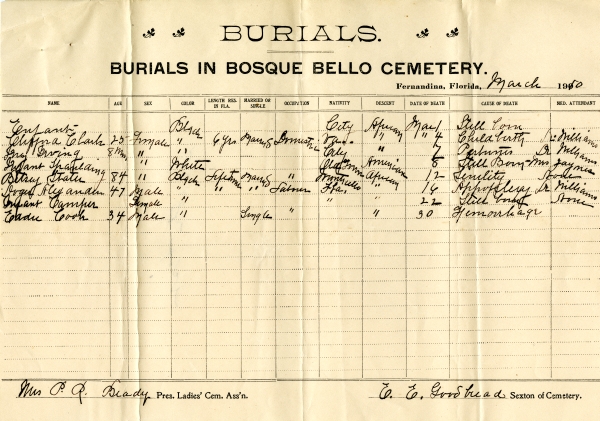 BURIALS.
BURIALS IN BOSQUE BELLO CEMETERY.
Fernandina, Florida, March 1900
NAME AGE SEX COLOR LENGTH RES. IN FLA. MARRIED OR SINGLE OCCUPATION NATIVITY DESCENT DATE OF DEATH CAUSE OF DEATH MED. ATTENDANT
Infant Black City African Still born
Clark 25 Female " 6 yrs Domestic " " 4 Childbirth Dr Williams
Irving 8 " " City " 7 Dr Williams
Infant " White American 8 Still Born Mrs
84 " Black Lifetime African 12 Senility None
Alexander 47 Male " " " Laborer Fla. " 16 Apoplexy Dr Williams
Infant Female " " " 22 Still born None
Eddie Cook 34 Male " Single " " 30 Hemorrhage
Mrs P. R. Beady Pres. Ladies' Cem. Ass'n. E. E. Goodbread Sexton of Cemetery.